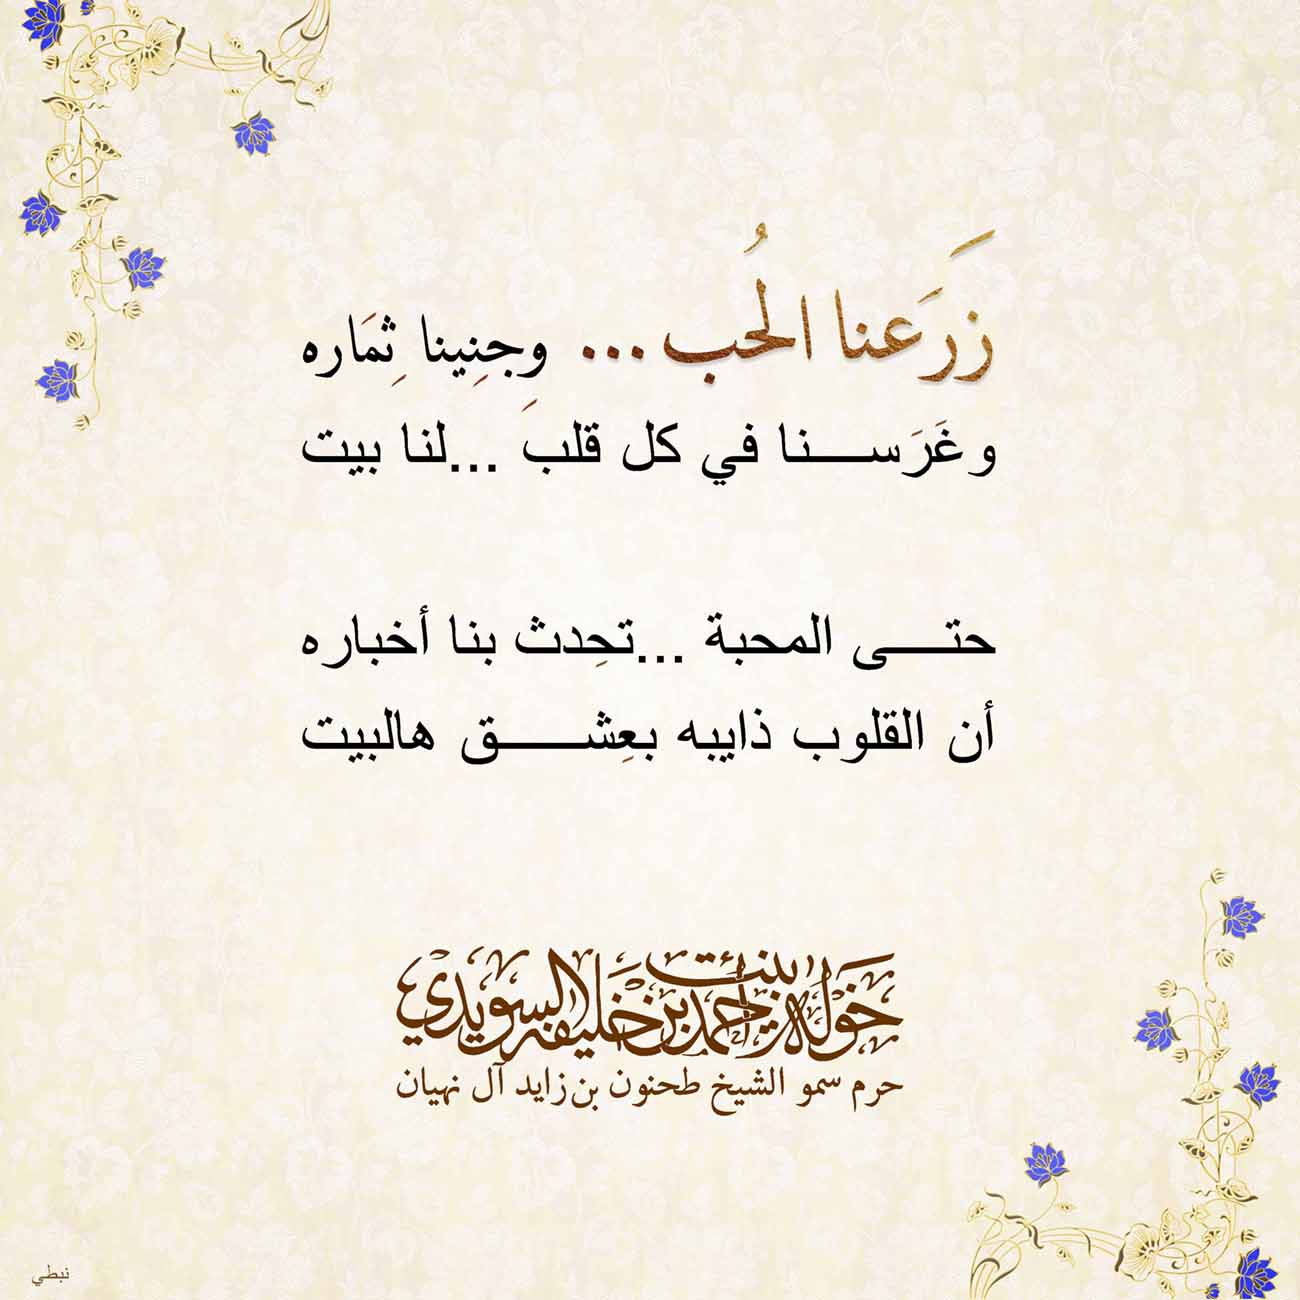 زَرَعنا الحُب ... وجنِينا ثمَاره
وغَرَسـنا في كل قلبَ ...لنا بيت
حتـى المحبة ...تحِدث بنا أخباره
أن القلوب ذايبه بعِشـق هالبيت
خوله بنت أحمد بن خليفه السويدي
حرم سمو الشيخ طحنون بن زايد آل نهيان
نبطي